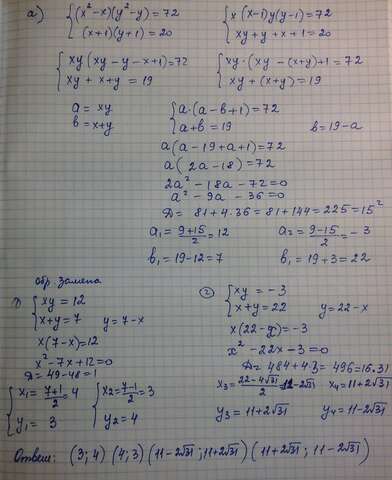 а) { (x² - x)(y² - y) = 72    { x(x-1)y(y-1) = 72
(x+1)(y+1) = 20    xy + y + x + 1 = 20
{ xy(xy - y - x + 1) = 72    { xy·(xy - (x+y) + 1 = 72
xy + x + y = 19    xy + (x+y) = 19
a = xy    { a·(a - b + 1) = 72
b = x+y    a + b = 19    b = 19 - a
a(a - 19 + a + 1) = 72
a(2a - 18) = 72
2a² - 18a - 72 = 0
a² - 9a - 36 = 0
D = 81 + 4·36 = 81 + 144 = 225 = 15²
a₁ = (9+15)/2 = 12    a₂ = (9-15)/2 = -3
b₁ = 19 - 12 = 7    b₁ = 19 + 3 = 22
обр. замена
1) { xy = 12
x + y = 7    y = 7 - x
x(7-x) = 12
x² - 7x + 12 = 0
D = 49 - 48 = 1
{ x₁ = (7+1)/2 = 4    { x₂ = (7-1)/2 = 3
y₁ = 3    y₂ = 4
2) { xy = -3
x + y = 22    y = 22 - x
x(22 - x) = -3
x² - 22x - 3 = 0
x₃ = (22 - 4√31)/2    11 - 2√31    x₄ = 11 + 2√31
y₃ = 11 + 2√31    y₄ = 11 - 2√31
Ответ: (3; 4) (4; 3) (11 - 2√31; 11 + 2√31) (11 + 2√31; 11 - 2√31)